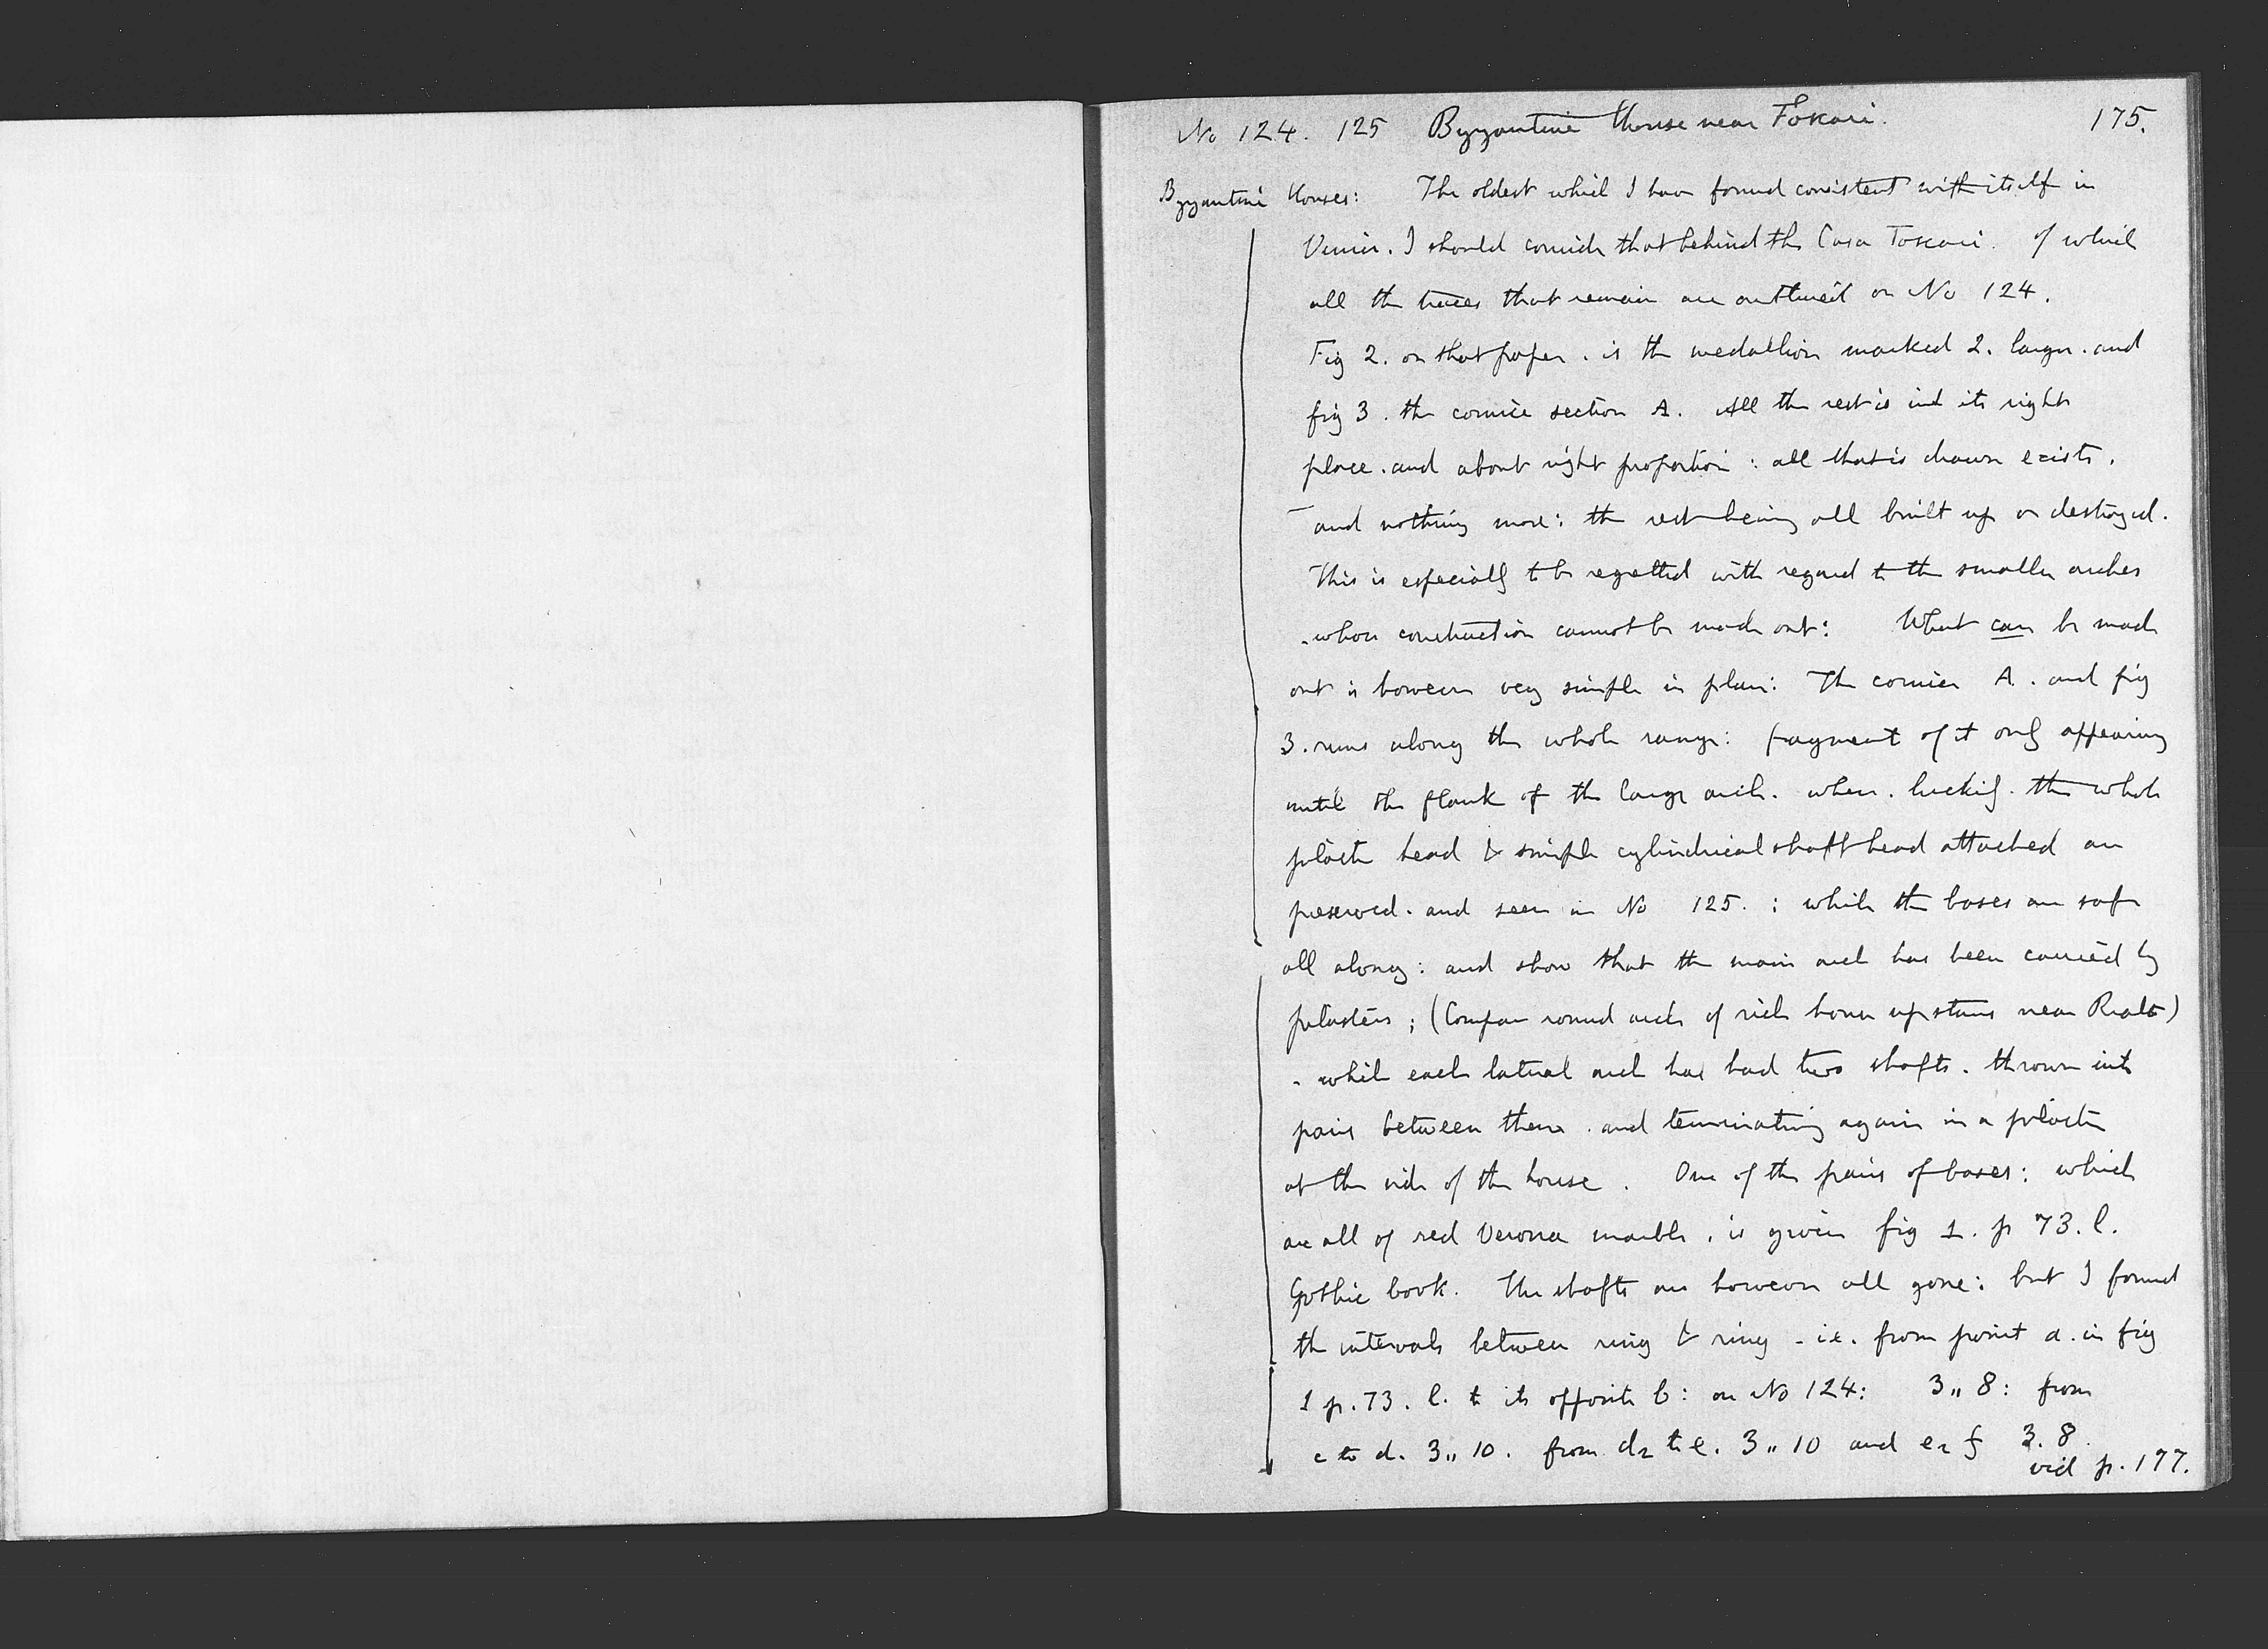 No 124. 125 Byzantine House near Foscari. 175.
Byzantine Houses: The oldest which I have found consistent with itself in
Venice. I should consider that behind the Casa Foscari. of which
all the traces that remain are outlined on No 124.
Fig 2. on that paper. is the medallion marked 2. larger. and
fig 3. the cornice section A. All the rest is in its right
place. and about right proportion: all that is drawn exists.
and nothing more: the rest being all built up or destroyed.
This is especially to be regretted with regard to the smaller arches
- whose construction cannot be made out: What can be made
out is however very simple in plan: The cornice A. and fig
3. runs along the whole range: fragment of it only appearing
until the flank of the large arch. when. luckily. the whole
pilaster head & simple cylindrical shaft head attached are
preserved. and seen in No 125.: while the bases are safe
all along: and show that the main arch has been carried by
pilasters; (Compare round arch of rich house upstairs near Rialto)
- while each lateral arch has had two shafts. thrown into
pairs between them. and terminating again in a pilaster
at the side of the house. One of the pairs of bases: which
are all of red Verona marble, is given fig 1. p 73. l.
Gothic book. The shafts are however all gone: but I found
the intervals between ring & ring - i.e. from point a. in fig
1 p. 73. l. to its opposite b: on No 124: 3,, 8: from
c to d. 3,, 10. from d2 to e. 3,, 10 and e2 f 3. 8.
vid p. 177.